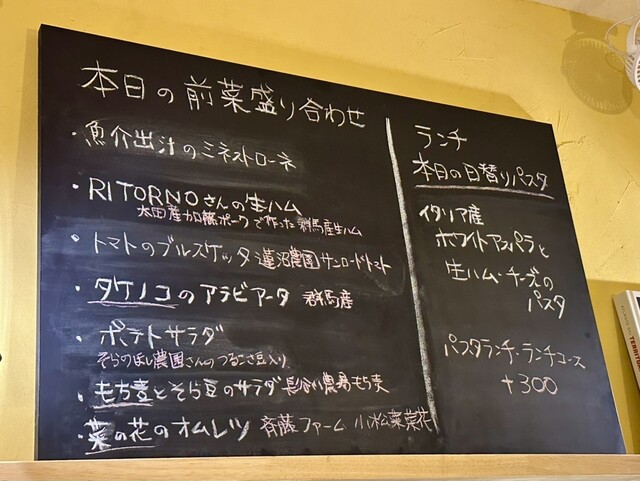 本日の前菜盛り合わせ
・魚介出汁のミネストローネ
・RITORNOさんの生ハム
太田産加藤ポークで作った群馬産生ハム
・トマトのブルスケッタ 蓮沼農園サンロードトマト
・タケノコのアラビアータ 群馬産
・ポテトサラダ
そらのほし農園さんのつるこさ豆入り
・もち麦とそら豆のサラダ 長谷川農場もち麦
・菜の花のオムレツ 斉藤ファーム 小松菜菜花
ランチ
本日の日替りパスタ
イタリア産
ホワイトアスパラと
生ハム・チーズの
パスタ
パスタランチ・ランチコース
+300
TERRITO